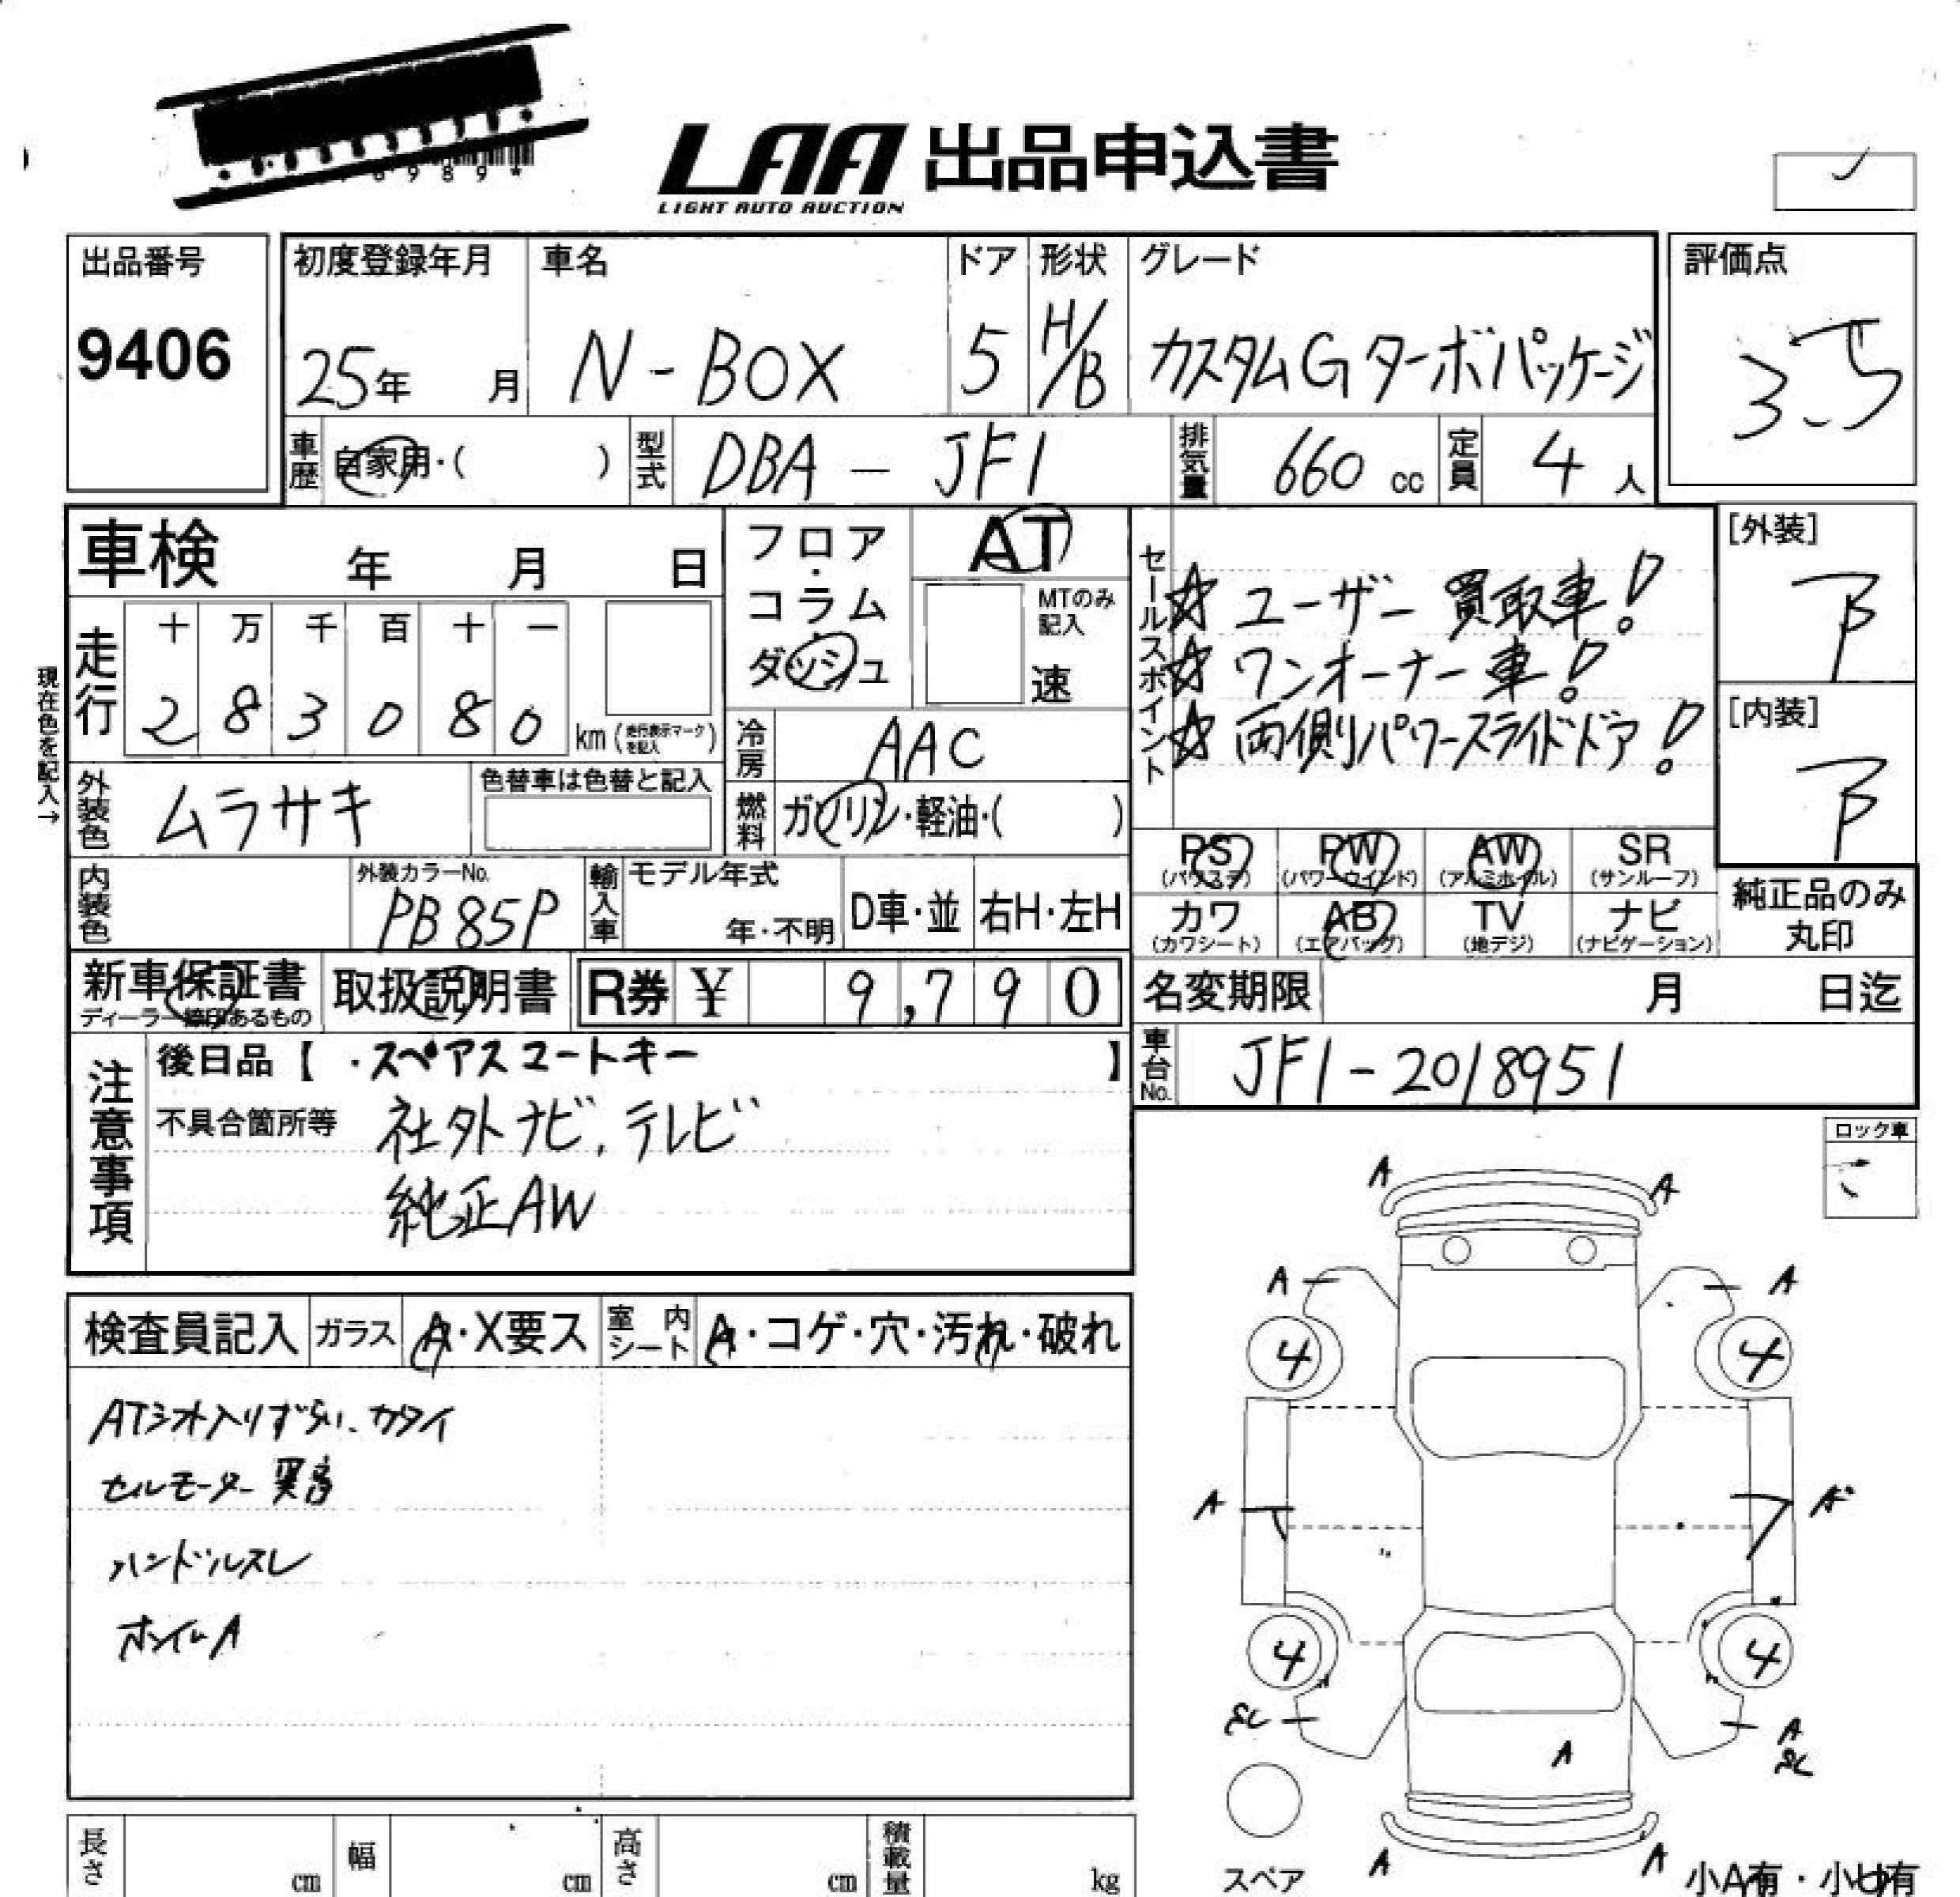 6989*
LAA 出品申込書
LIGHT AUTO AUCTION
出品番号
9406
初度登録年月
25年 月
車名
N-BOX
ドア
5
形状
H/B
グレード
カスタムGターボパッケージ
評価点
3.5
車歴 自家用・( )
型式 DBA-JF1
排気量 660 cc
定員 4 人
車検 年 月 日
フロア・コラム・ダッシュ
AT
MTのみ記入
速
セールスポイント
☆ユーザー買取車!
☆ワンオーナー車!
☆両側パワースライドドア!
[外装]
B
[内装]
B
現在色を記入→
走行 十 万 千 百 十 一
2 8 3 0 8 0 km (走行表示マークを記入)
冷房 AAC
外装色 ムラサキ
色替車は色替と記入
燃料 ガソリン・軽油・( )
PS (パワステ) PW (パワーウインド) AW (アルミホイル) SR (サンルーフ)
カワ (カワシート) AB (エアバッグ) TV (地デジ) ナビ (ナビゲーション)
純正品のみ丸印
内装色
外装カラーNo.
PB85P
輸入車 モデル年式
年・不明 D車・並 右H・左H
新車保証書
ディーラー捺印あるもの
取扱説明書
R券 ¥ 9,790
名変期限 月 日迄
車台No. JF1-2018951
注意事項
後日品【 ・スペアスマートキー 】
不具合箇所等 社外ナビ、テレビ
純正AW
ロック車
検査員記入 ガラス A・X要ス 室内シート A・コゲ・穴・汚れ・破れ
ATシフト入りずらい、カタイ
セルモーター異音
ハンドルスレ
ホイルA
A A
A A
4 4
A A
4 4
A A
A A
スペア
小A有・小U有
長さ cm 幅 cm 高さ cm 積載量 kg